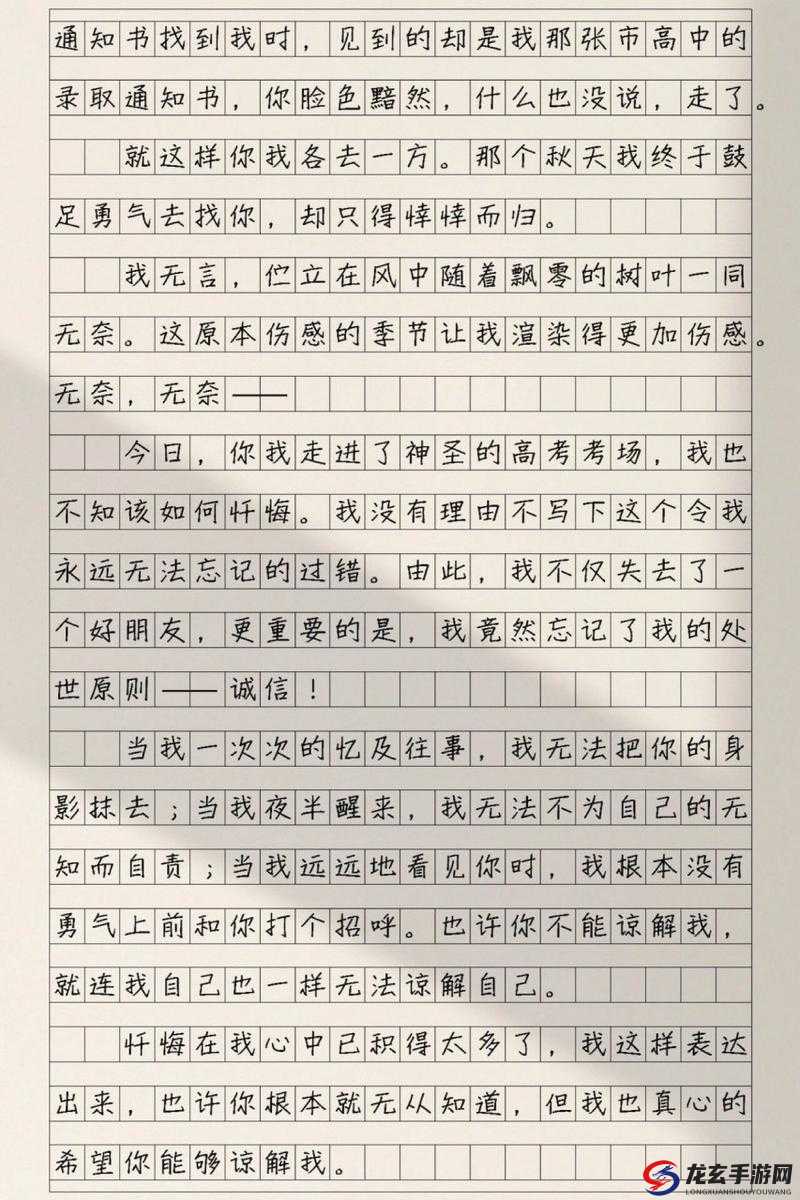 通知书找到我时，见到的却是我那张市高中的
录取通知书，你脸色黯然，什么也没说，走了。
就这样你我各去一方。那个秋天我终于鼓
足勇气去找你，却只得悻悻而归。
我无言，伫立在风中随着飘零的树叶一同
无奈。这原本伤感的季节让我渲染得更加伤感。
无奈，无奈——
今日，你我走进了神圣的高考考场，我也
不知该如何忏悔。我没有理由不写下这个令我
永远无法忘记的过错。由此，我不仅失去了一
个好朋友，更重要的是，我竟然忘记了我的处
世原则——诚信！
当我一次次的忆及往事，我无法把你的身
影抹去；当我夜半醒来，我无法不为自己的无
知而自责；当我远远地看见你时，我根本没有
勇气上前和你打个招呼。也许你不能谅解我，
就连我自己也一样无法谅解自己。
忏悔在我心中已积得太多了，我这样表达
出来，也许你根本就无从知道，但我也真心的
希望你能够谅解我。
龙玄手游网
LONGXUANSHOUYOUWANG